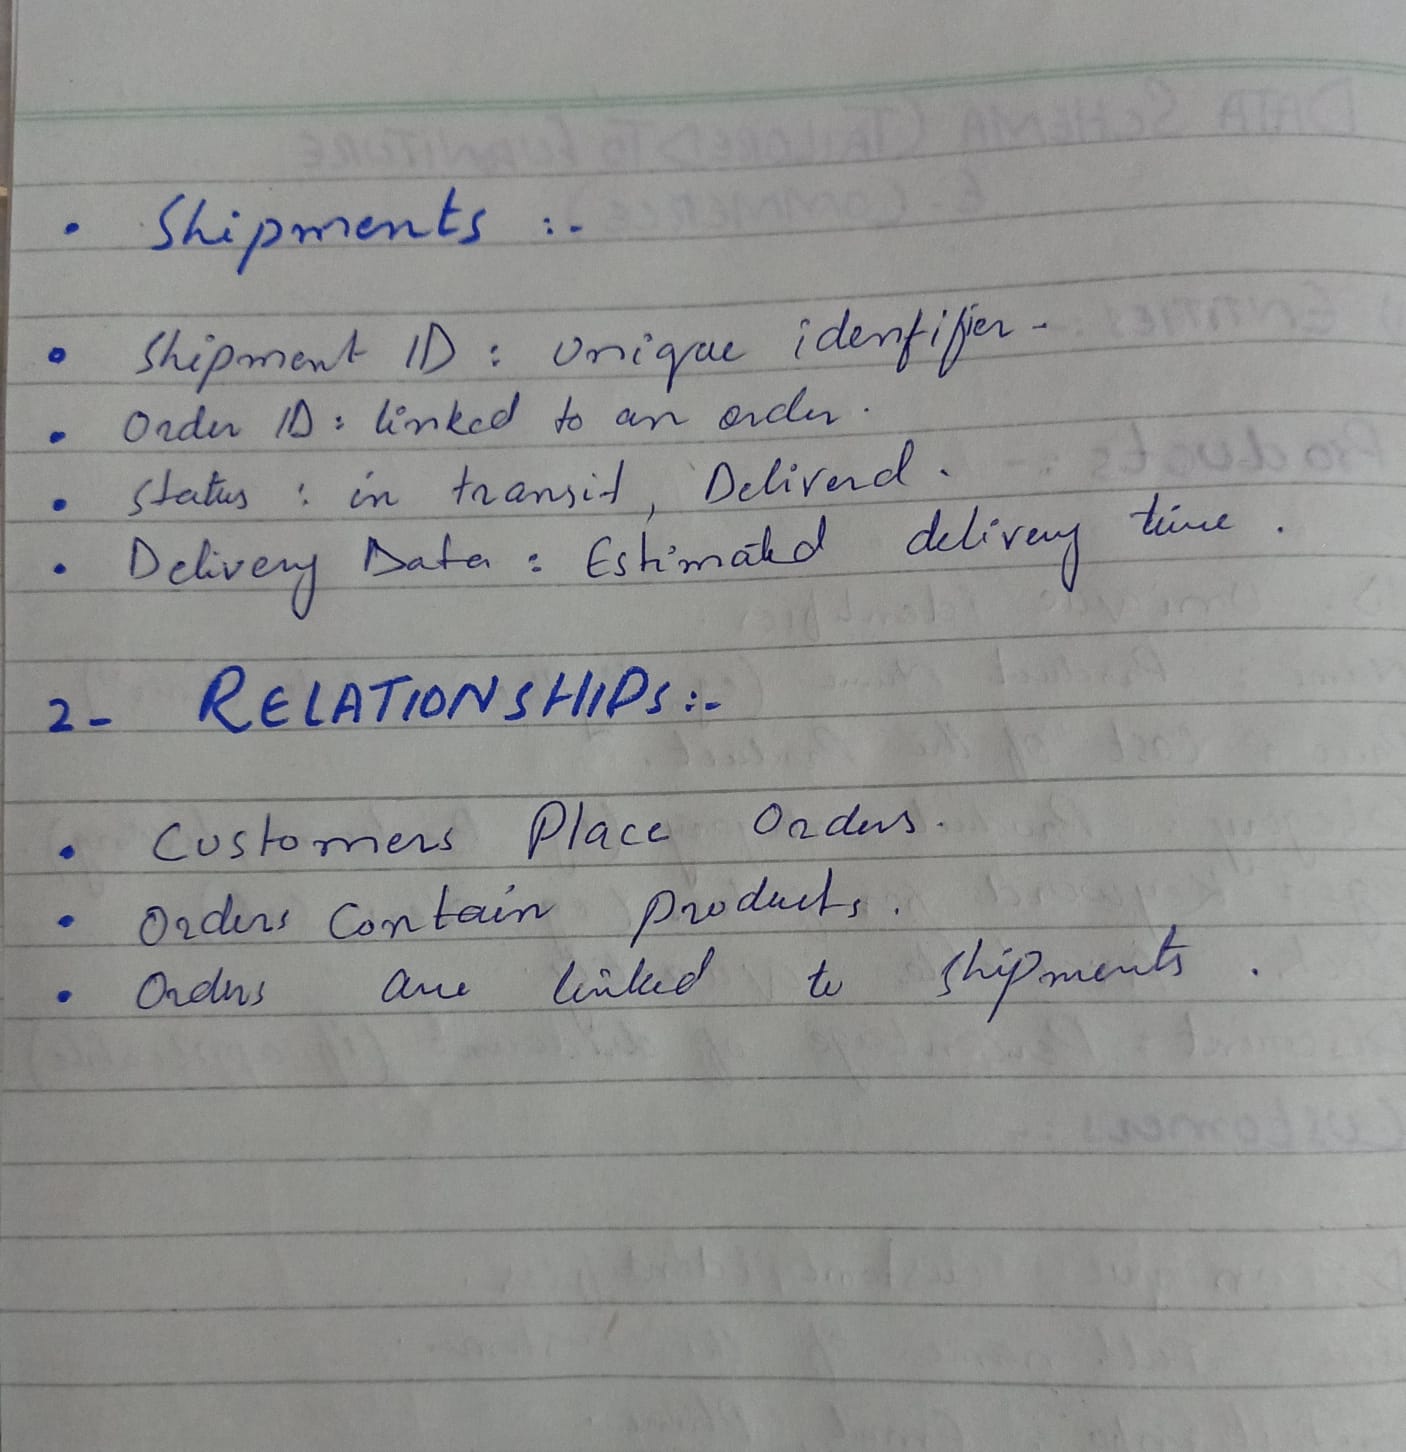 • Shipments :-
• Shipment ID : Unique identifier -
• Order ID : linked to an order.
• Status : in transit, Deliverd.
• Delivery Data : Estimated delivery time.
2- RELATIONSHIPS :-
• Customers Place Orders.
• Orders Contain Products.
• Orders are linked to Shipments.